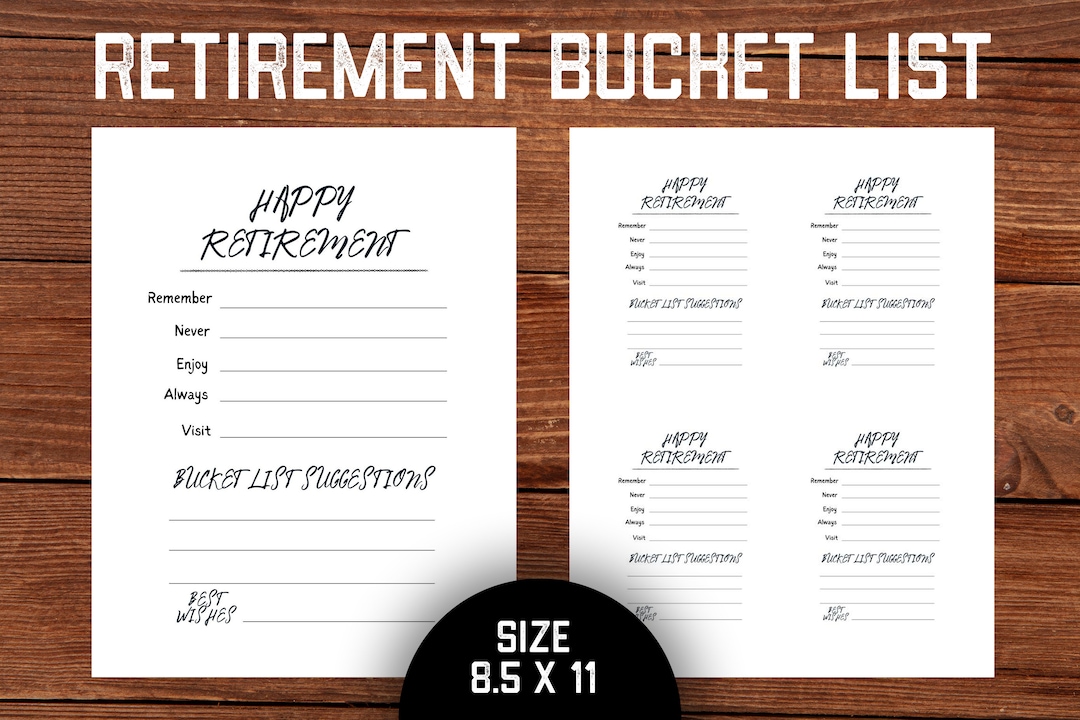 RETIREMENT BUCKET LIST
HAPPY
RETIREMENT
Remember
Never
Enjoy
Always
Visit
BUCKET LIST SUGGESTIONS
BEST
WISHES
HAPPY
RETIREMENT
Remember
Never
Enjoy
Always
Visit
BUCKET LIST SUGGESTIONS
BEST
WISHES
HAPPY
RETIREMENT
Remember
Never
Enjoy
Always
Visit
BUCKET LIST SUGGESTIONS
BEST
WISHES
HAPPY
RETIREMENT
Remember
Never
Enjoy
Always
Visit
BUCKET LIST SUGGESTIONS
BEST
WISHES
HAPPY
RETIREMENT
Remember
Never
Enjoy
Always
Visit
BUCKET LIST SUGGESTIONS
BEST
WISHES
SIZE
8.5 X 11